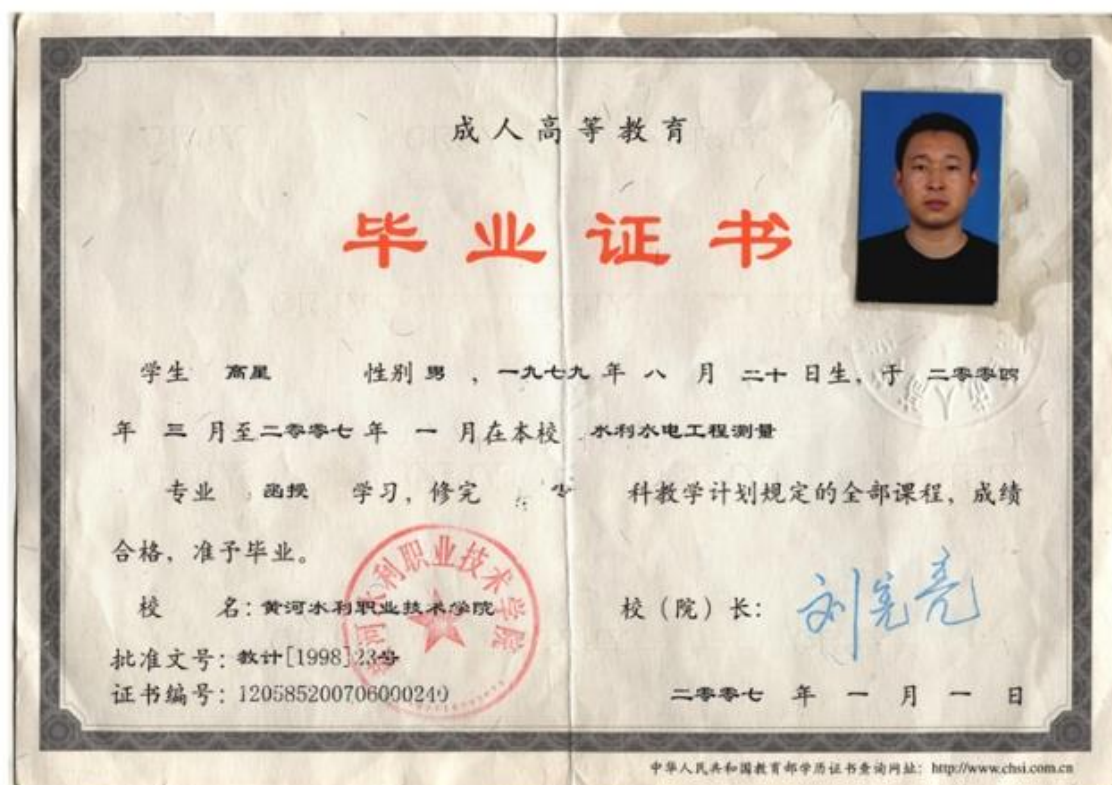 成人高等教育
毕业证书
学生 高星 性别 男 ，一九七九 年 八 月 二十 日生，于 二零零四
年 三 月至 二零零七 年 一 月在本校 水利水电工程测量
专业 函授 学习，修完 专 科教学计划规定的全部课程，成绩
合格，准予毕业。
校 名：黄河水利职业技术学院
校（院）长：刘宪亮
批准文号：教计[1998]23号
证书编号：120585200706000240
二零零七 年 一 月 一 日
黄河水利职业技术学院
中华人民共和国教育部学历证书查询网址：http://www.chsi.com.cn